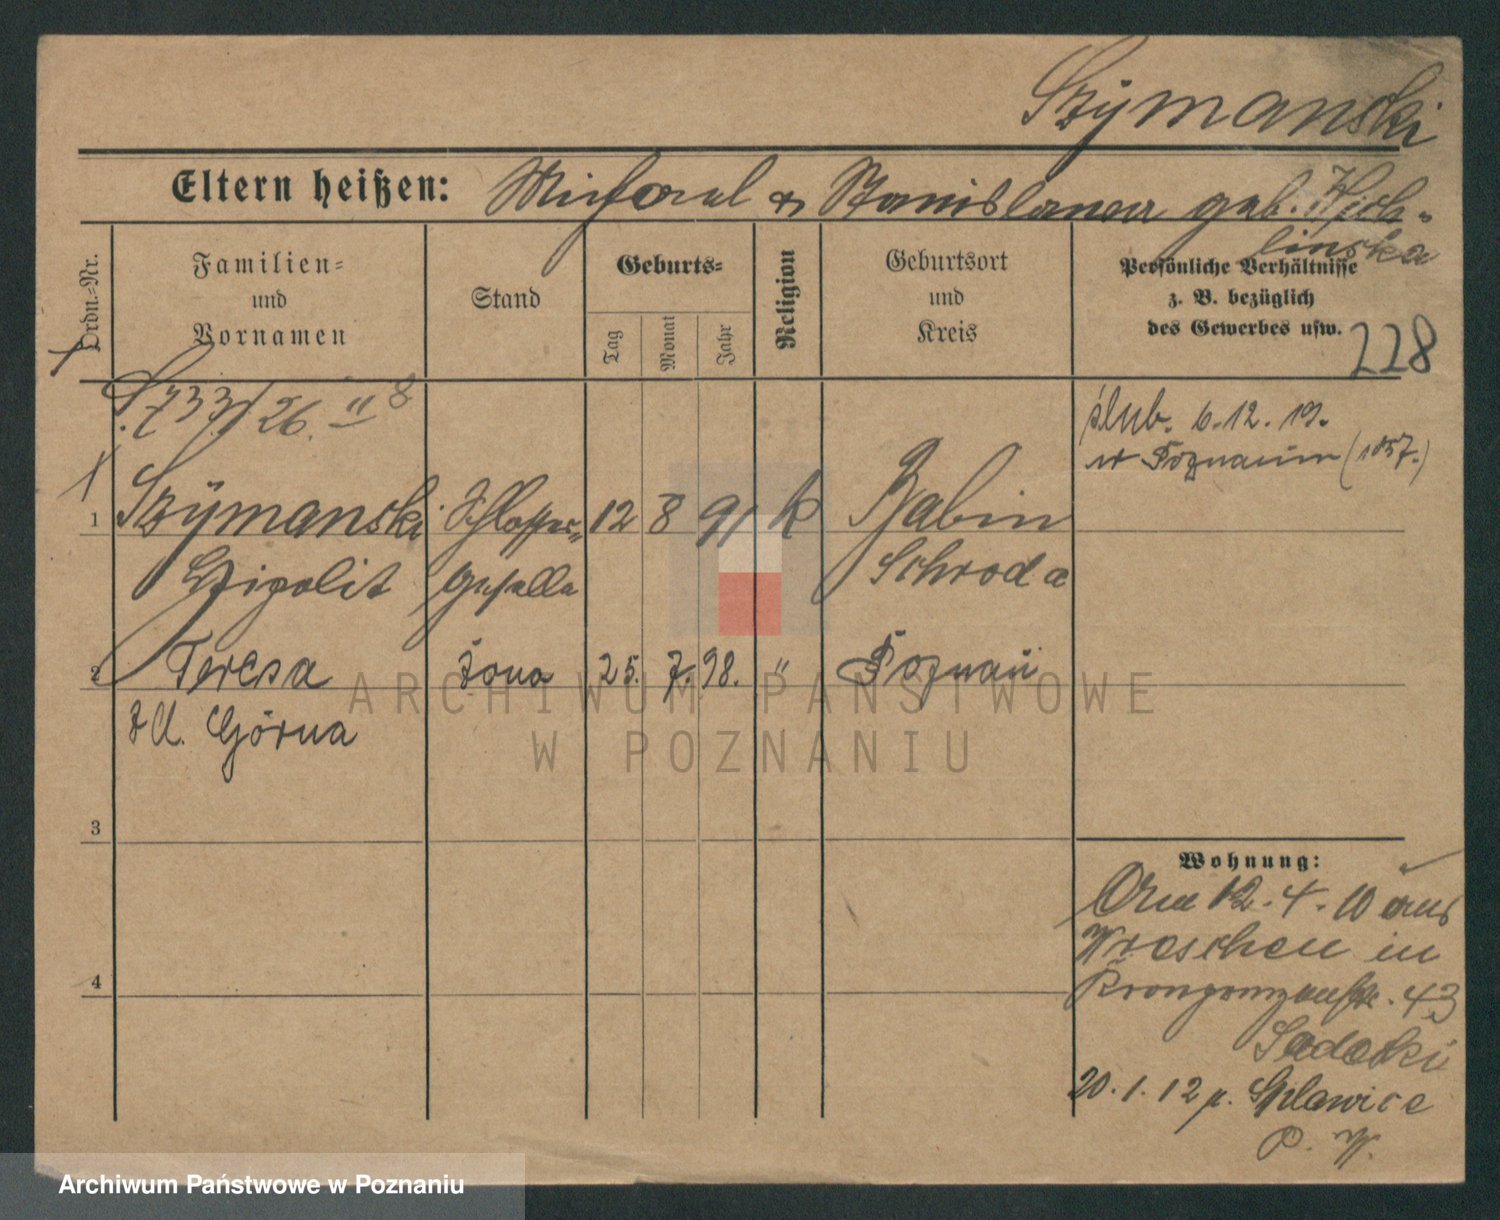 Szymanski
Eltern heißen: Michael & Stanislawa geb. Wich-
linska
Ordn.-Nr.
Familien-
und
Vornamen
Stand
Geburts-
Tag
Monat
Jahr
Religion
Geburtsort
und
Kreis
Persönliche Verhältnisse
z. B. bezüglich
des Gewerbes usw.
228
S. 733/26. II 8
ślub. 6.12.19.
w Poznaniu (1857.)
1 Szymanski Schlosser- 12 8 91 k Babin
Hipolit Geselle Schroda
2 Teresa żona 25. 7. 98. " Poznań
zd. Górna
3
4
Wohnung:
Am 12.4.10 aus
Wreschen in
Kronprinzenstr. 43
Sadecki
20.1.12 n. Gulawice
P. W.
ARCHIWUM PAŃSTWOWE
W POZNANIU
Archiwum Państwowe w Poznaniu